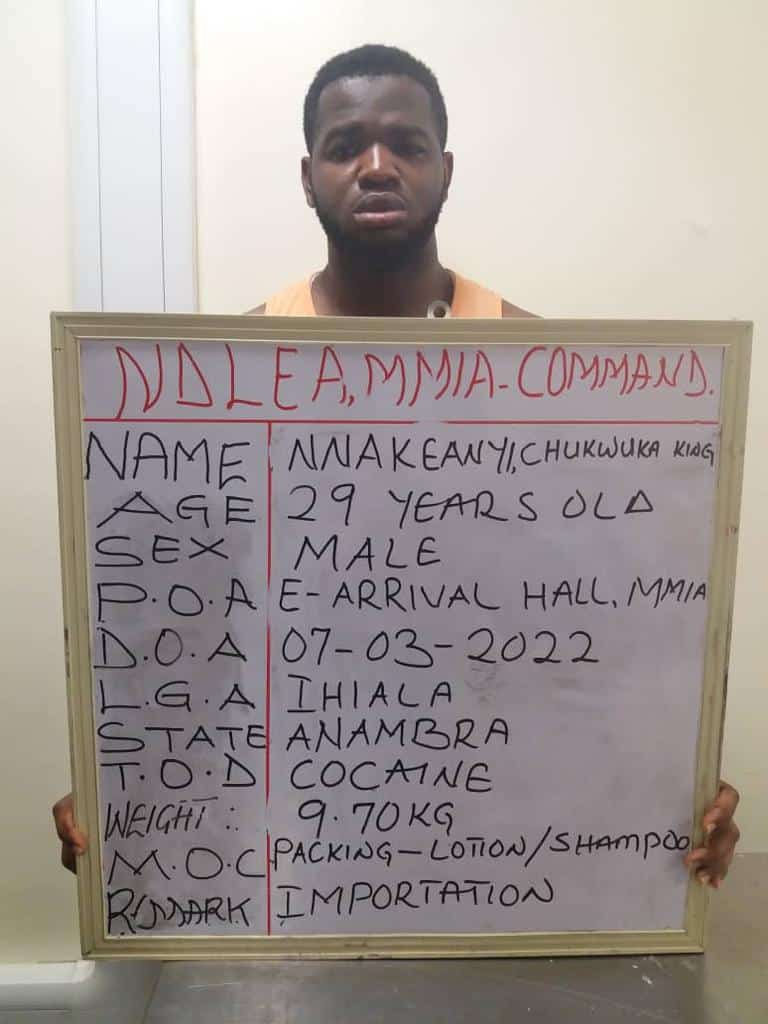 NDLEA, MMIA-COMMAND.
NAME NNAKEANYI, CHUKWUKA KING
AGE 29 YEARS OLD
SEX MALE
P.O.A E-ARRIVAL HALL, MMIA
D.O.A 07-03-2022
L.G.A IHIALA
STATE ANAMBRA
T.O.D COCAINE
WEIGHT : 9.70KG
M.O.C PACKING-LOTION/SHAMPOO
R/MARK IMPORTATION